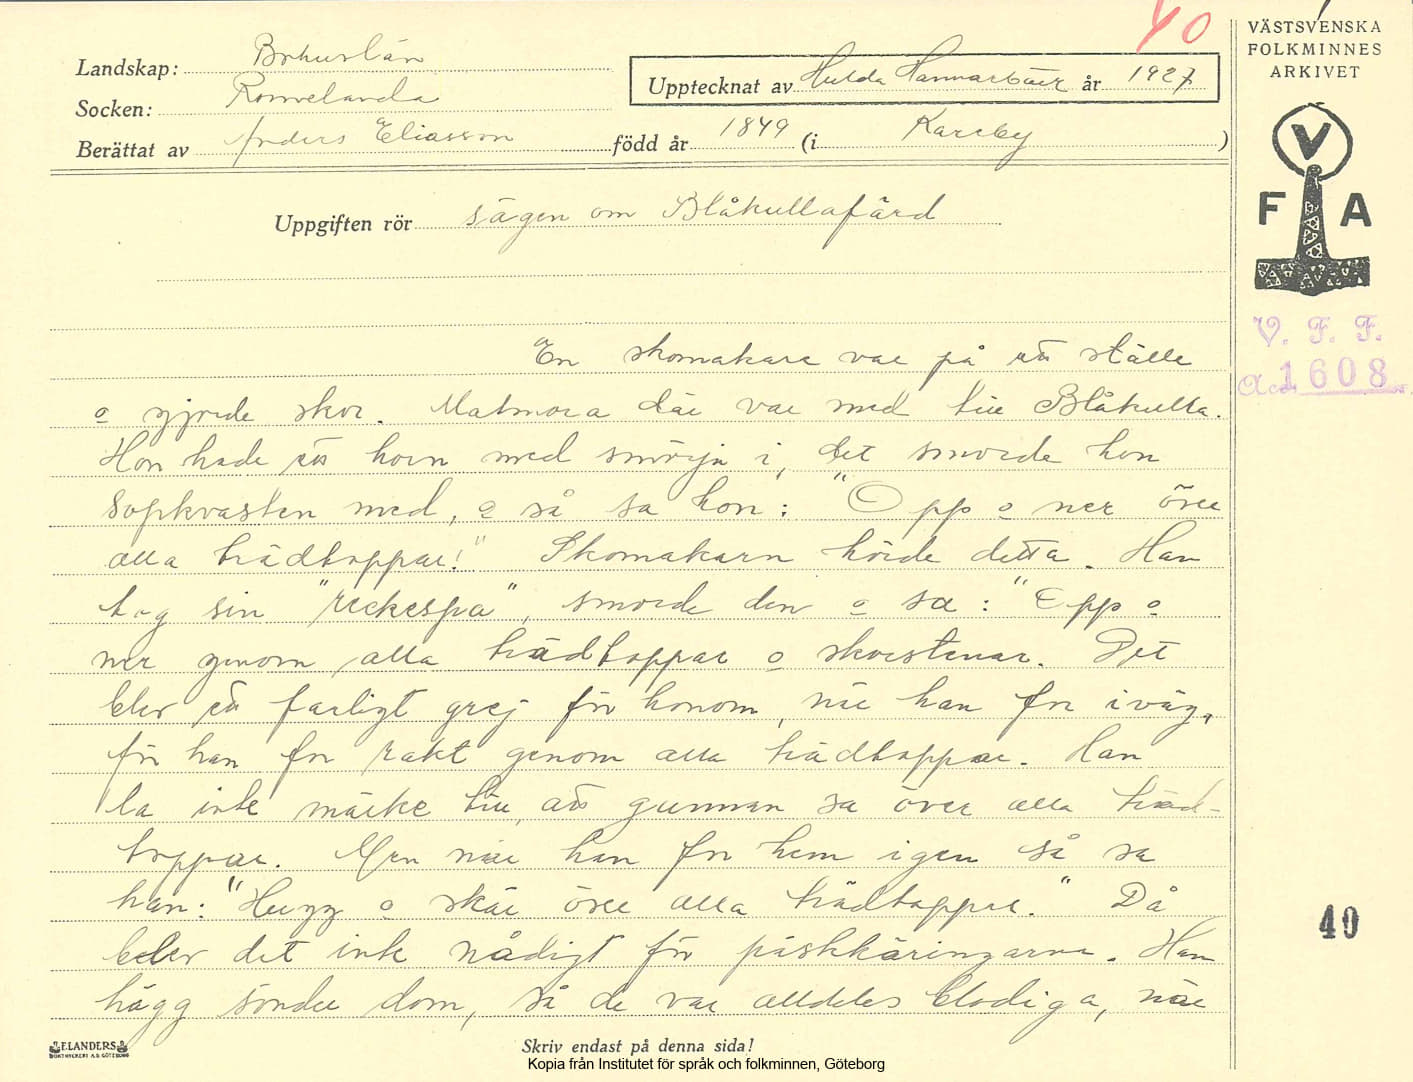 40
VÄSTSVENSKA
FOLKMINNES
ARKIVET
Landskap: Bohuslän
Upptecknat av Hulda Hammarbäck år 1927
Socken: Romelanda
Berättat av Anders Eliasson född år 1849 (i Kareby )
V
F A
Uppgiften rör sägen om Blåkullafärd
V. F. F.
Acc. 1608
En skomakare var på ett ställe
o gjorde skor. Matmora där var med till Blåkulla.
Hon hade ett horn med smörja i, det smorde hon
sopkvasten med, o så sa hon: "Opp o ner över
alla trädtoppar!" Skomakarn hörde detta. Han
tog sin "reckespa", smorde den o sa: "Opp o
ner genom alla trädtoppar o skorstenar. Det
blev ett farligt grej för honom, när han for iväg,
för han for rakt genom alla trädtoppar. Han
la inte märke till, att gumman sa över alla träd-
toppar. Men när han for hem igen så sa
han: "Hugg o skär över alla trädtoppar." Då
blev det inte nådigt för påskkäringarna. Han
högg sönder dom, så de var alldeles blodiga, när
40
ELANDERS
BOKTRYCKERI A.B. GÖTEBORG
Skriv endast på denna sida!
Kopia från Institutet för språk och folkminnen, Göteborg